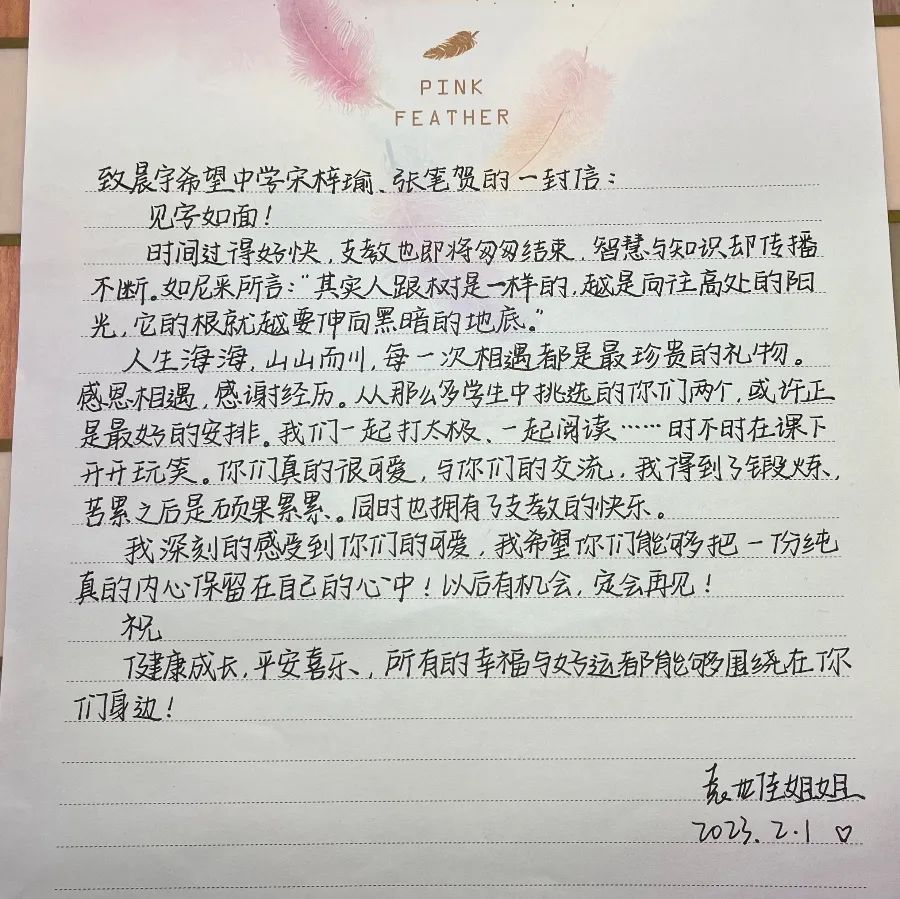 PINK
FEATHER
致晨宇希望中学宋梓瑜、张笔贺的一封信：
见字如面！
时间过得好快，支教也即将匆匆结束，智慧与知识却传播
不断。如尼采所言：“其实人跟树是一样的，越是向往高处的阳
光，它的根就越要伸向黑暗的地底。”
人生海海，山山而川，每一次相遇都是最珍贵的礼物。
感恩相遇，感谢经历。从那么多学生中挑选的你们两个，或许正
是最好的安排。我们一起打太极、一起阅读……时不时在课下
开开玩笑。你们真的很可爱，与你们的交流，我得到了锻炼、
苦累之后是硕果累累。同时也拥有了支教的快乐。
我深刻的感受到你们的可爱，我希望你们能够把一份纯
真的内心保留在自己的心中！以后有机会，定会再见！
祝
健康成长，平安喜乐、，所有的幸福与好运都能够围绕在你
们身边！
袁世佳姐姐
2023.2.1 ♡